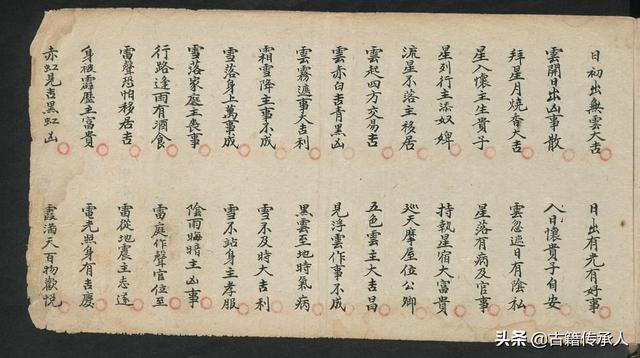 日初出無雲大吉 日出有光有好事
雲開日出凶事散 入日懷貴子自安
拜星月燒香大吉 雲忽遮日有陰私
星入懷主生貴子 星落有病及官事
星列行主添奴婢 持執星宿大富貴
流星不落主移居 巡天摩星位公卿
雲起四方交易吉 五色雲主大吉昌
雲赤白吉青黑凶 見浮雲作事不成
雲霧遮事大吉利 黑雲至地時氣病
霜雪降主事不成 雪不及時大吉利
雪落身上萬事成 雪不沾身主孝服
雪落家庭主喪事 陰雨晦暗主凶事
行路逢雨有酒食 雷庭作聲官位至
雷聲恐怕移居吉 雷從地震主志遂
身被霹靂主富貴 電光照身有吉慶
赤虹見吉黑虹凶 霞滿天百物歡悅
头条 @古籍传承人